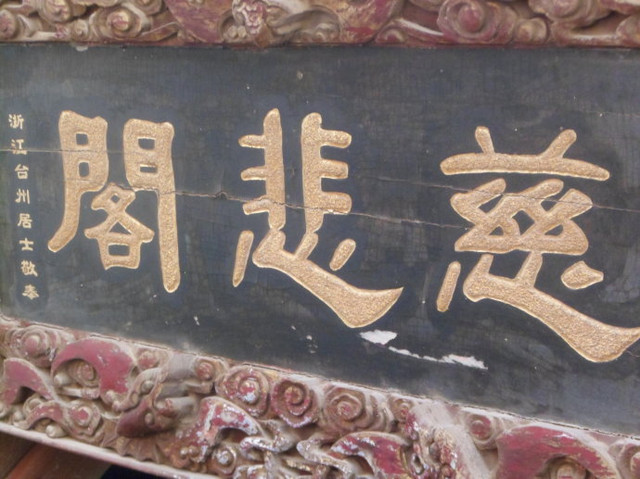 慈悲閣
浙江台州居士敬奉